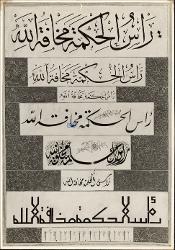 راس الحكمة مخافة الله
راس الحكمة مخافة الله
راس الحكمة مخافة الله
راس الحكمة مخافة الله
راس الحكمة مخافة الله
راس الحكمة مخافة الله
راس الحكمة مخافة الله